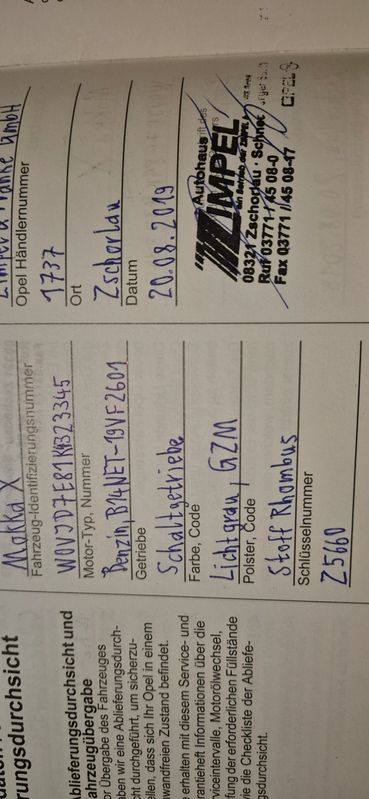 rungsdurchsicht
Ablieferungsdurchsicht und
Fahrzeugübergabe
Übergabe des Fahrzeuges
wir eine Ablieferungsdurch-
durchgeführt, um sicherzu-
dass sich Ihr Opel in einem
wandfreien Zustand befindet.
erhalten mit diesem Service- und
Informationen über die
Motorölwechsel,
der erforderlichen Füllstände
die Checkliste der Abliefe-
rungsdurchsicht.
Mokka X
Fahrzeug-Identifizierungsnummer
Motor-Typ, Nummer
Benzin, B14NET-19VF2601
Getriebe
Schaltgetriebe
Farbe, Code
Lichtgrau, GZM
Polster, Code
Stoff Rhombus
Schlüsselnummer
Z5660
GmbH
Opel Händlernummer
1737
Ort
Zschorlau
Datum
20.08.2019
Autohaus
ZIMPEL
08321 Zschorlau · Schnee
Ruf 03771 / 45 08-0
Fax 03771 / 45 08-17